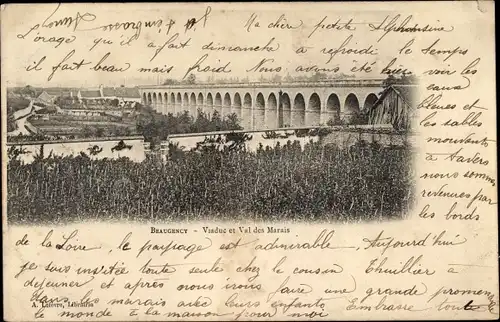 Ma chère petite Alphonsine
L'orage qu'il a fait dimanche a refroidi le temps
il fait beau mais froid. Nous avons été hier voir les
eaux
bleues et
les sables
mouvants
à travers
nous sommes
revenues par
les bords
BEAUGENCY - Viaduc et Val des Marais
de la Loire, le paysage est admirable. Aujourd'hui
je suis invitée toute seule chez le cousin Thuillier à
déjeuner et après nous irons faire une grande promenade
dans les marais avec leurs enfants Embrasse tout
le monde à la maison pour moi
A. Lefèvre, Libraire